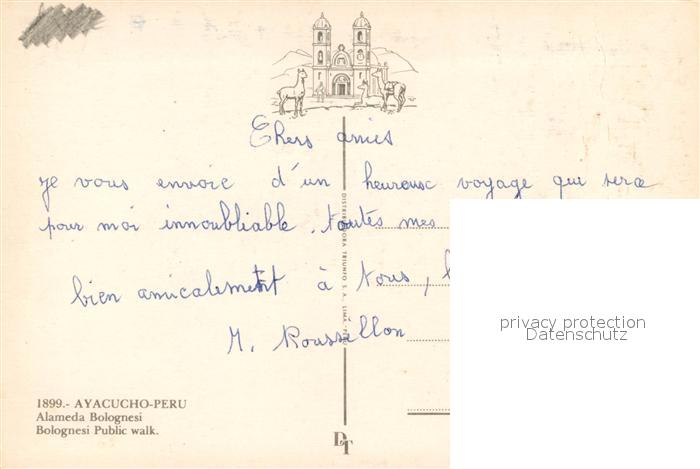 Chers amis
je vous envoie d'un heureux voyage qui sera
pour moi innoubliable. toutes mes
bien amicalement à tous,
M. Roussillon
DISTRIBUIDORA TRIUNFO S. A., LIMA, PERU
privacy protection
Datenschutz
1899.- AYACUCHO-PERU
Alameda Bolognesi
Bolognesi Public walk.
DT